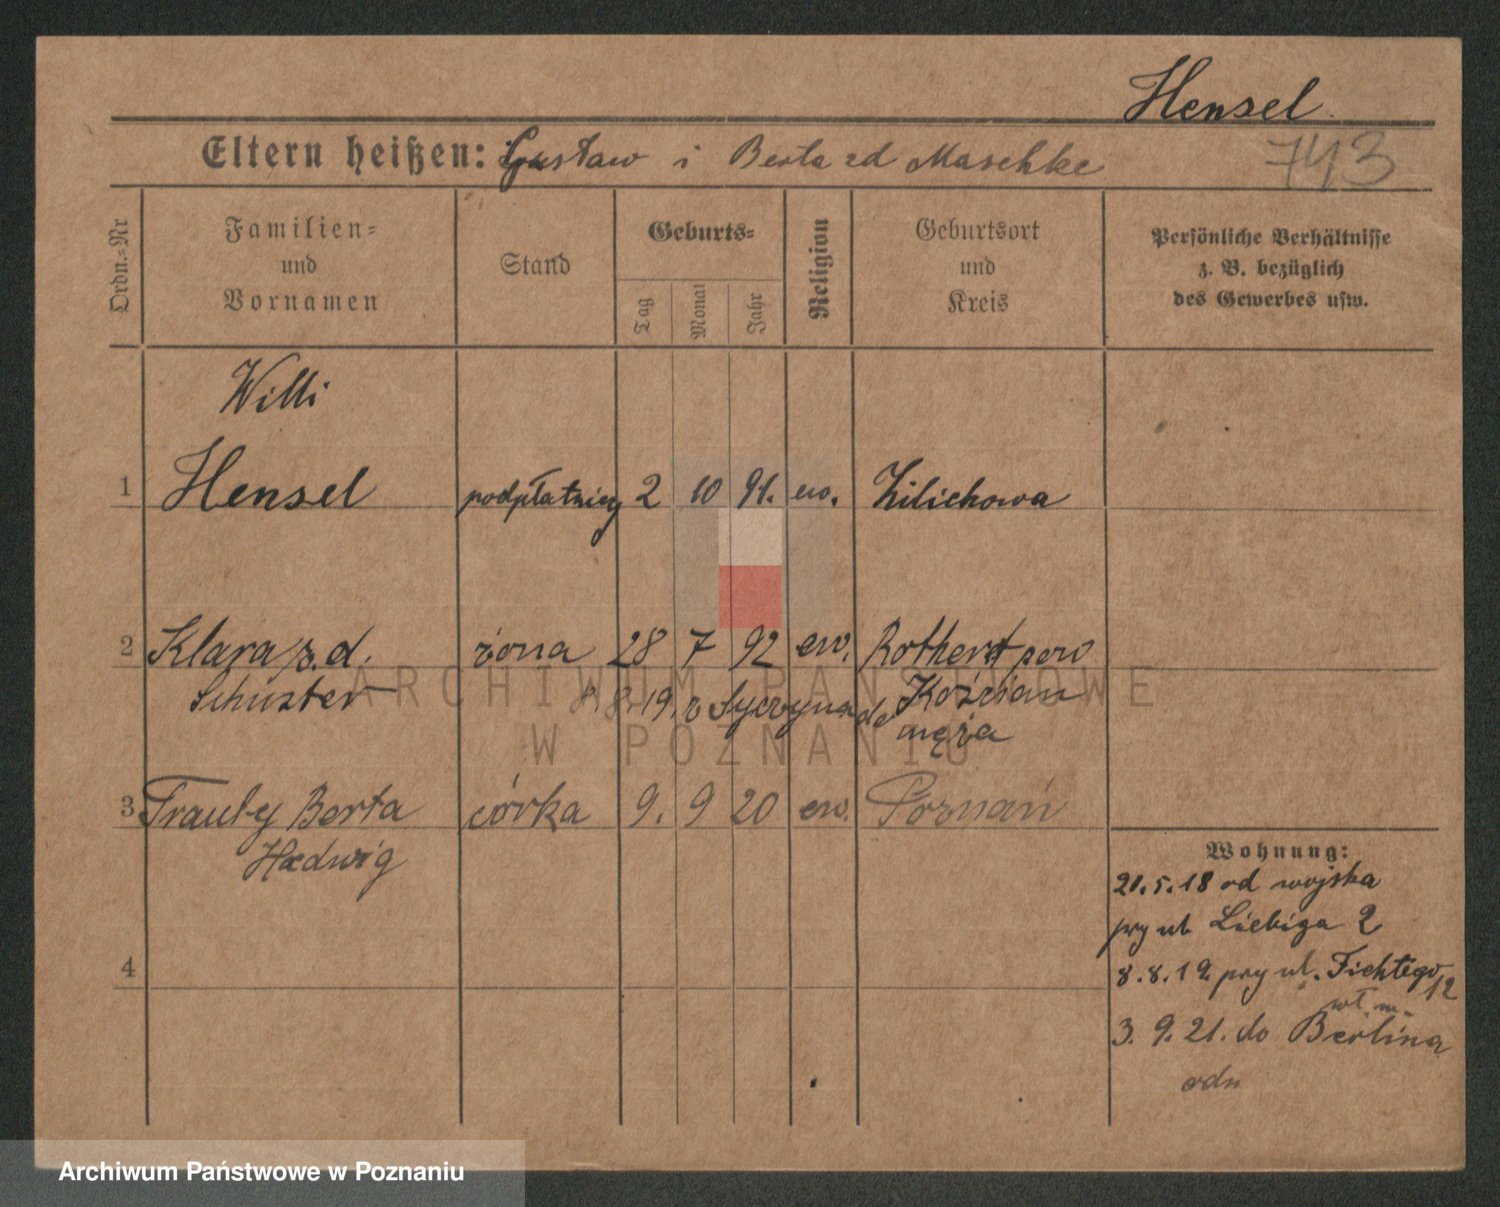 Hensel
Eltern heißen: Gustaw i Berta zd Maschke
743
Ordn.-Nr
Familien-
und
Vornamen
Stand
Geburts-
Tag
Monat
Jahr
Religion
Geburtsort
und
Kreis
Persönliche Verhältnisse
z. B. bezüglich
des Gewerbes usw.
Willi
1 Hensel podpłatniczy 2 10 91. ew. Zilichowa
2 Klara z.d. żona 28 7 92 ew. Rothert pow
Schuster 8.8.19. z Syczyna do Kościan
męża
3 Trauty Berta córka 9. 9 20 ew. Poznań
Hedwig
4
Wohnung:
21.5.18 od wojska
przy ul. Liebiga 2
8.8.19. przy ul. Fichtego 12
wł. m.
3. 9. 21. do Berlina
odn
ARCHIWUM PAŃSTWOWE
W POZNANIU
Archiwum Państwowe w Poznaniu